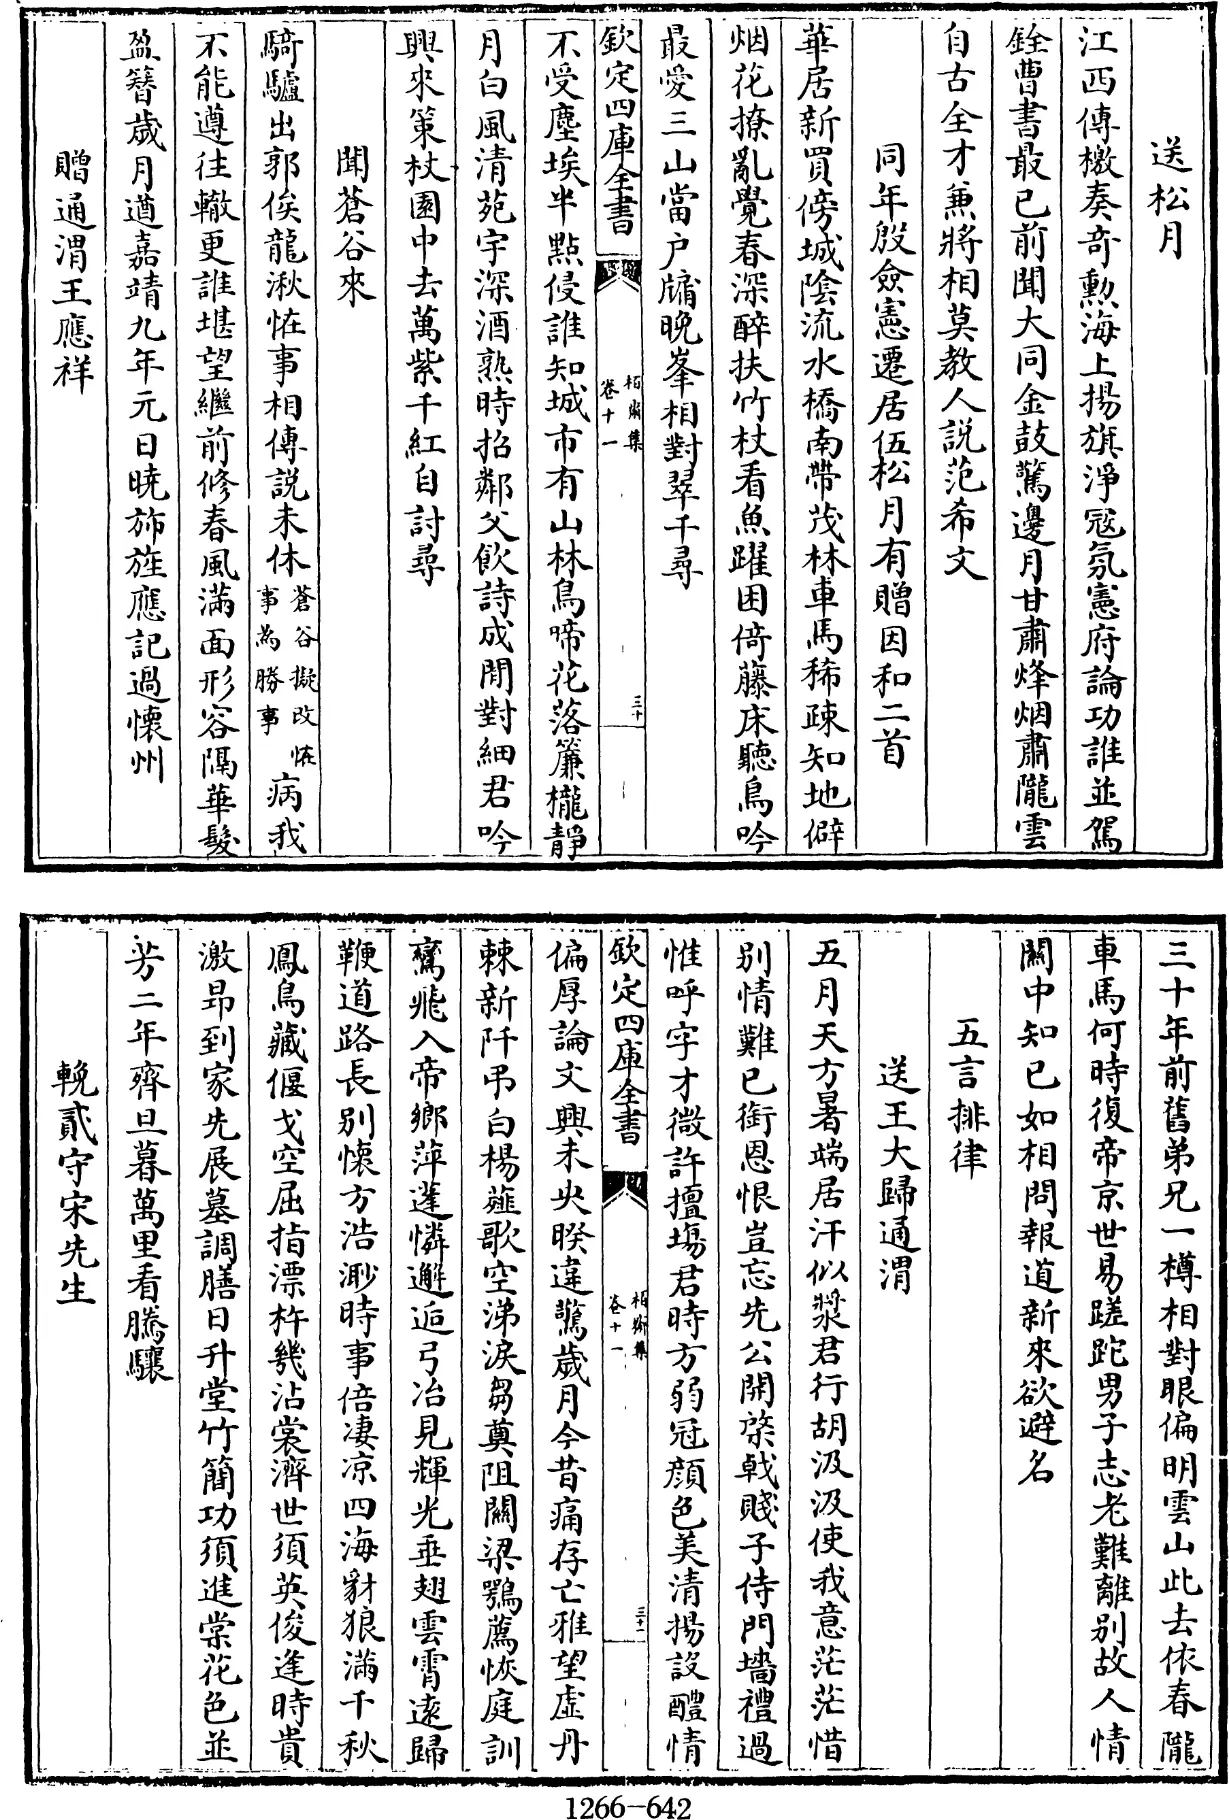 送松月
江西傳檄奏奇勲海上揚旗淨冦氛憲府論功誰並駕
銓曹書最已前聞大同金鼓驚邊月甘肅烽烟肅隴雲
自古全才兼將相莫教人説范希文
同年殷僉憲遷居伍松月有贈因和二首
華居新買傍城陰流水橋南帶茂林車馬稀疎知地僻
烟花撩亂覺春深醉扶竹杖看魚躍困倚藤床聽鳥吟
最愛三山當户牖晚峯相對翠千尋
欽定四庫全書
柏齋集
卷十一
三十
不受塵埃半點侵誰知城市有山林鳥啼花落簾櫳靜
月白風清苑宇深酒熟時招鄰父飲詩成閒對細君吟
興來策杖園中去萬紫千紅自討尋
聞蒼谷來
騎驢出郭俟龍湫恠事相傳説未休蒼谷擬改恠事為勝事病我
不能遵往轍更誰堪望繼前修春風滿面形容隔華髮
盈簪歲月遒嘉靖九年元日曉斾旌應記過懷州
贈通渭王應祥
三十年前舊弟兄一樽相對眼偏明雲山此去依春隴
車馬何時復帝京世易蹉跎男子志老難離別故人情
關中知已如相問報道新來欲避名
五言排律
送王大歸通渭
五月天方暑端居汗似漿君行胡汲汲使我意茫茫惜
别情難已銜恩恨豈忘先公開棨戟賤子侍門墻禮過
惟呼字才微許擅塲君時方弱冠顔色美清揚設醴情
欽定四庫全書
柏齋集
卷十一
三十一
偏厚論文興未央暌違驚歲月今昔痛存亡雅望虛丹
棘新阡弔白楊薤歌空涕淚芻奠阻關梁鶚薦恢庭訓
鸞飛入帝鄉萍蓬憐邂逅弓冶見輝光垂翅雲霄遠歸
鞭道路長别懷方浩渺時事倍凄凉四海豺狼滿千秋
鳳鳥藏偃戈空屈指漂杵幾沾裳濟世須英俊逢時貴
激昂到家先展墓調膳日升堂竹簡功須進棠花色並
芳二年齊旦暮萬里看騰驤
輓貳守宋先生
1266-642